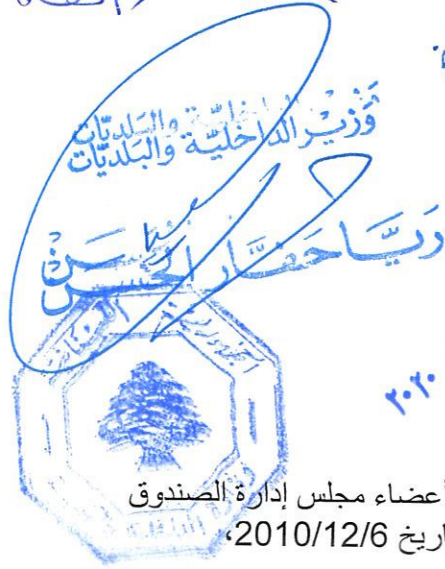 وزير الداخلية والبلديات
ريا حفار الحسن
٢٠٢٠
أعضاء مجلس إدارة الصندوق
اريخ 2010/12/6،